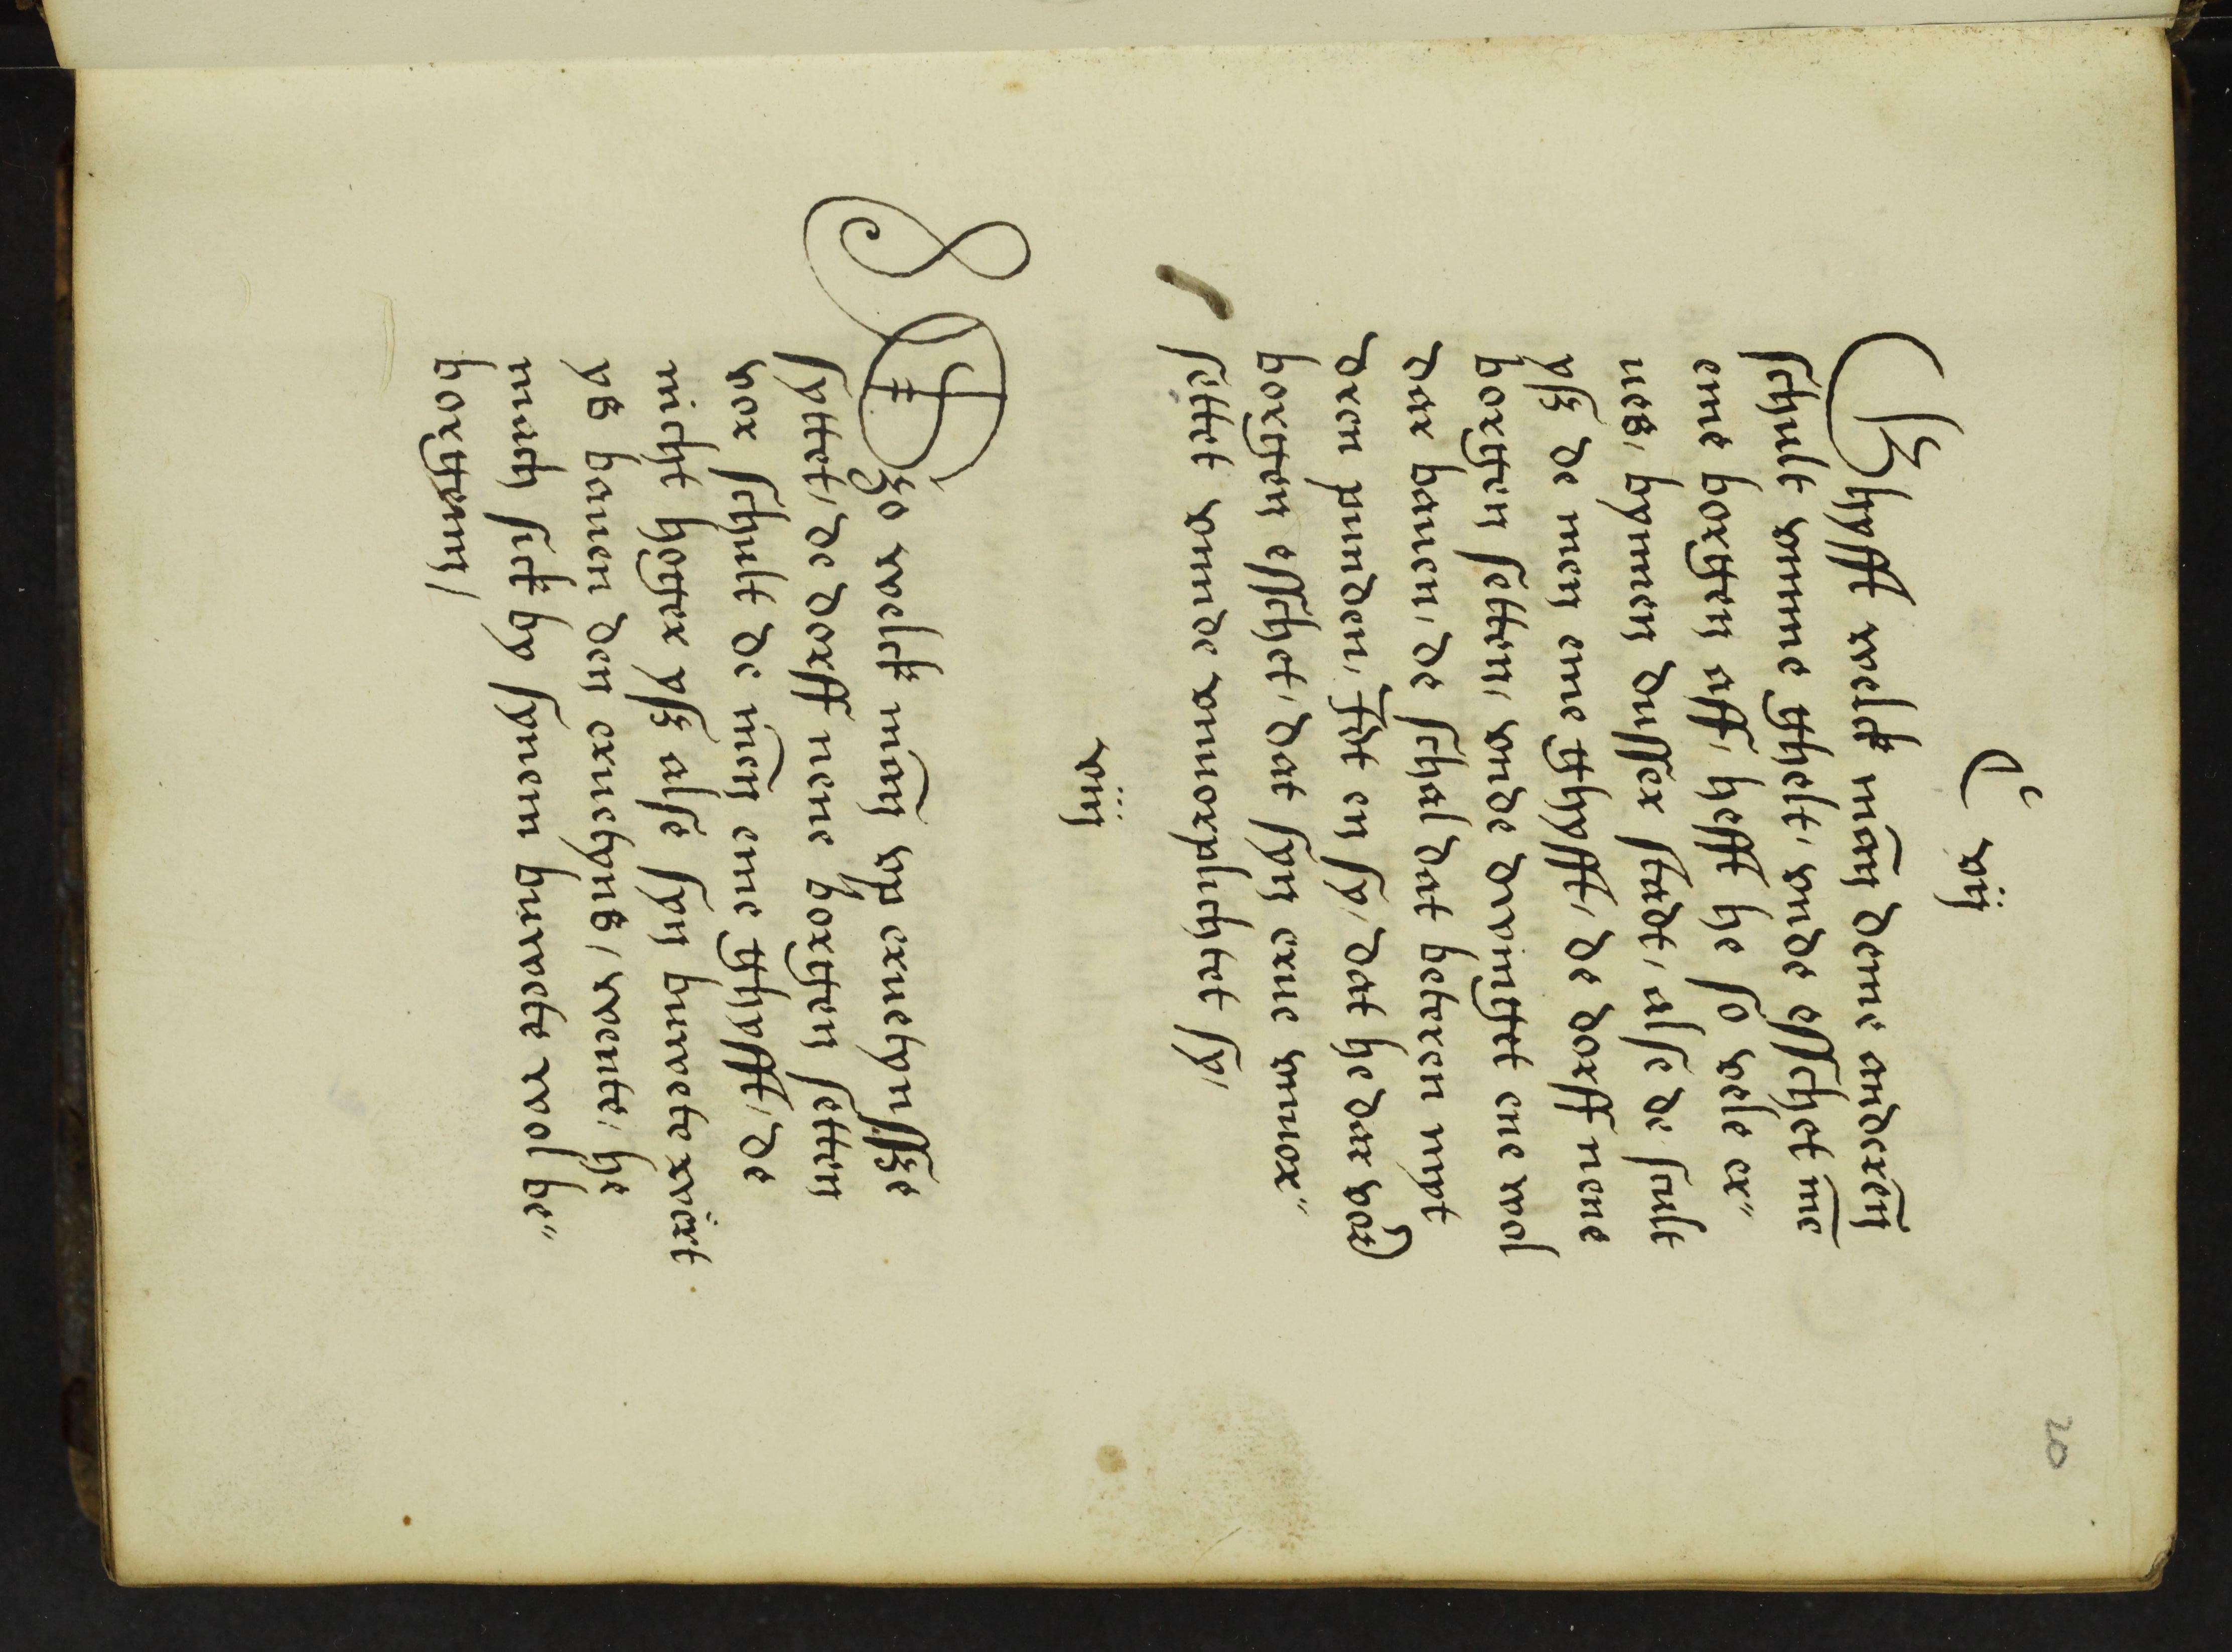 vij
Ghyfft welck man deme anderen
schult vmme tthelt, vnde esschet eme
eme borghen aff, hefft he so vele er„
ues, bynnen dusser stadt, alse de schult
ys de men eme tthyfft, de dorff nene
borghen setten, vnde dwinghet ene wol
dar bauen, de schal dat beteren myt
dren punden, Idt en sy, dat he dar vor
borghen esschet, dat syn erue vnuor„
settet vnde vnuorplichtet sy,
viij
So welck man vp erue tynsse
sittet, de dorff nene borghen setten
vor schult de men eme tthyfft, de
nicht hoger ys alse syn
ys bauen den eruetyns, he
mach sick by synem wol be„
borghenn,